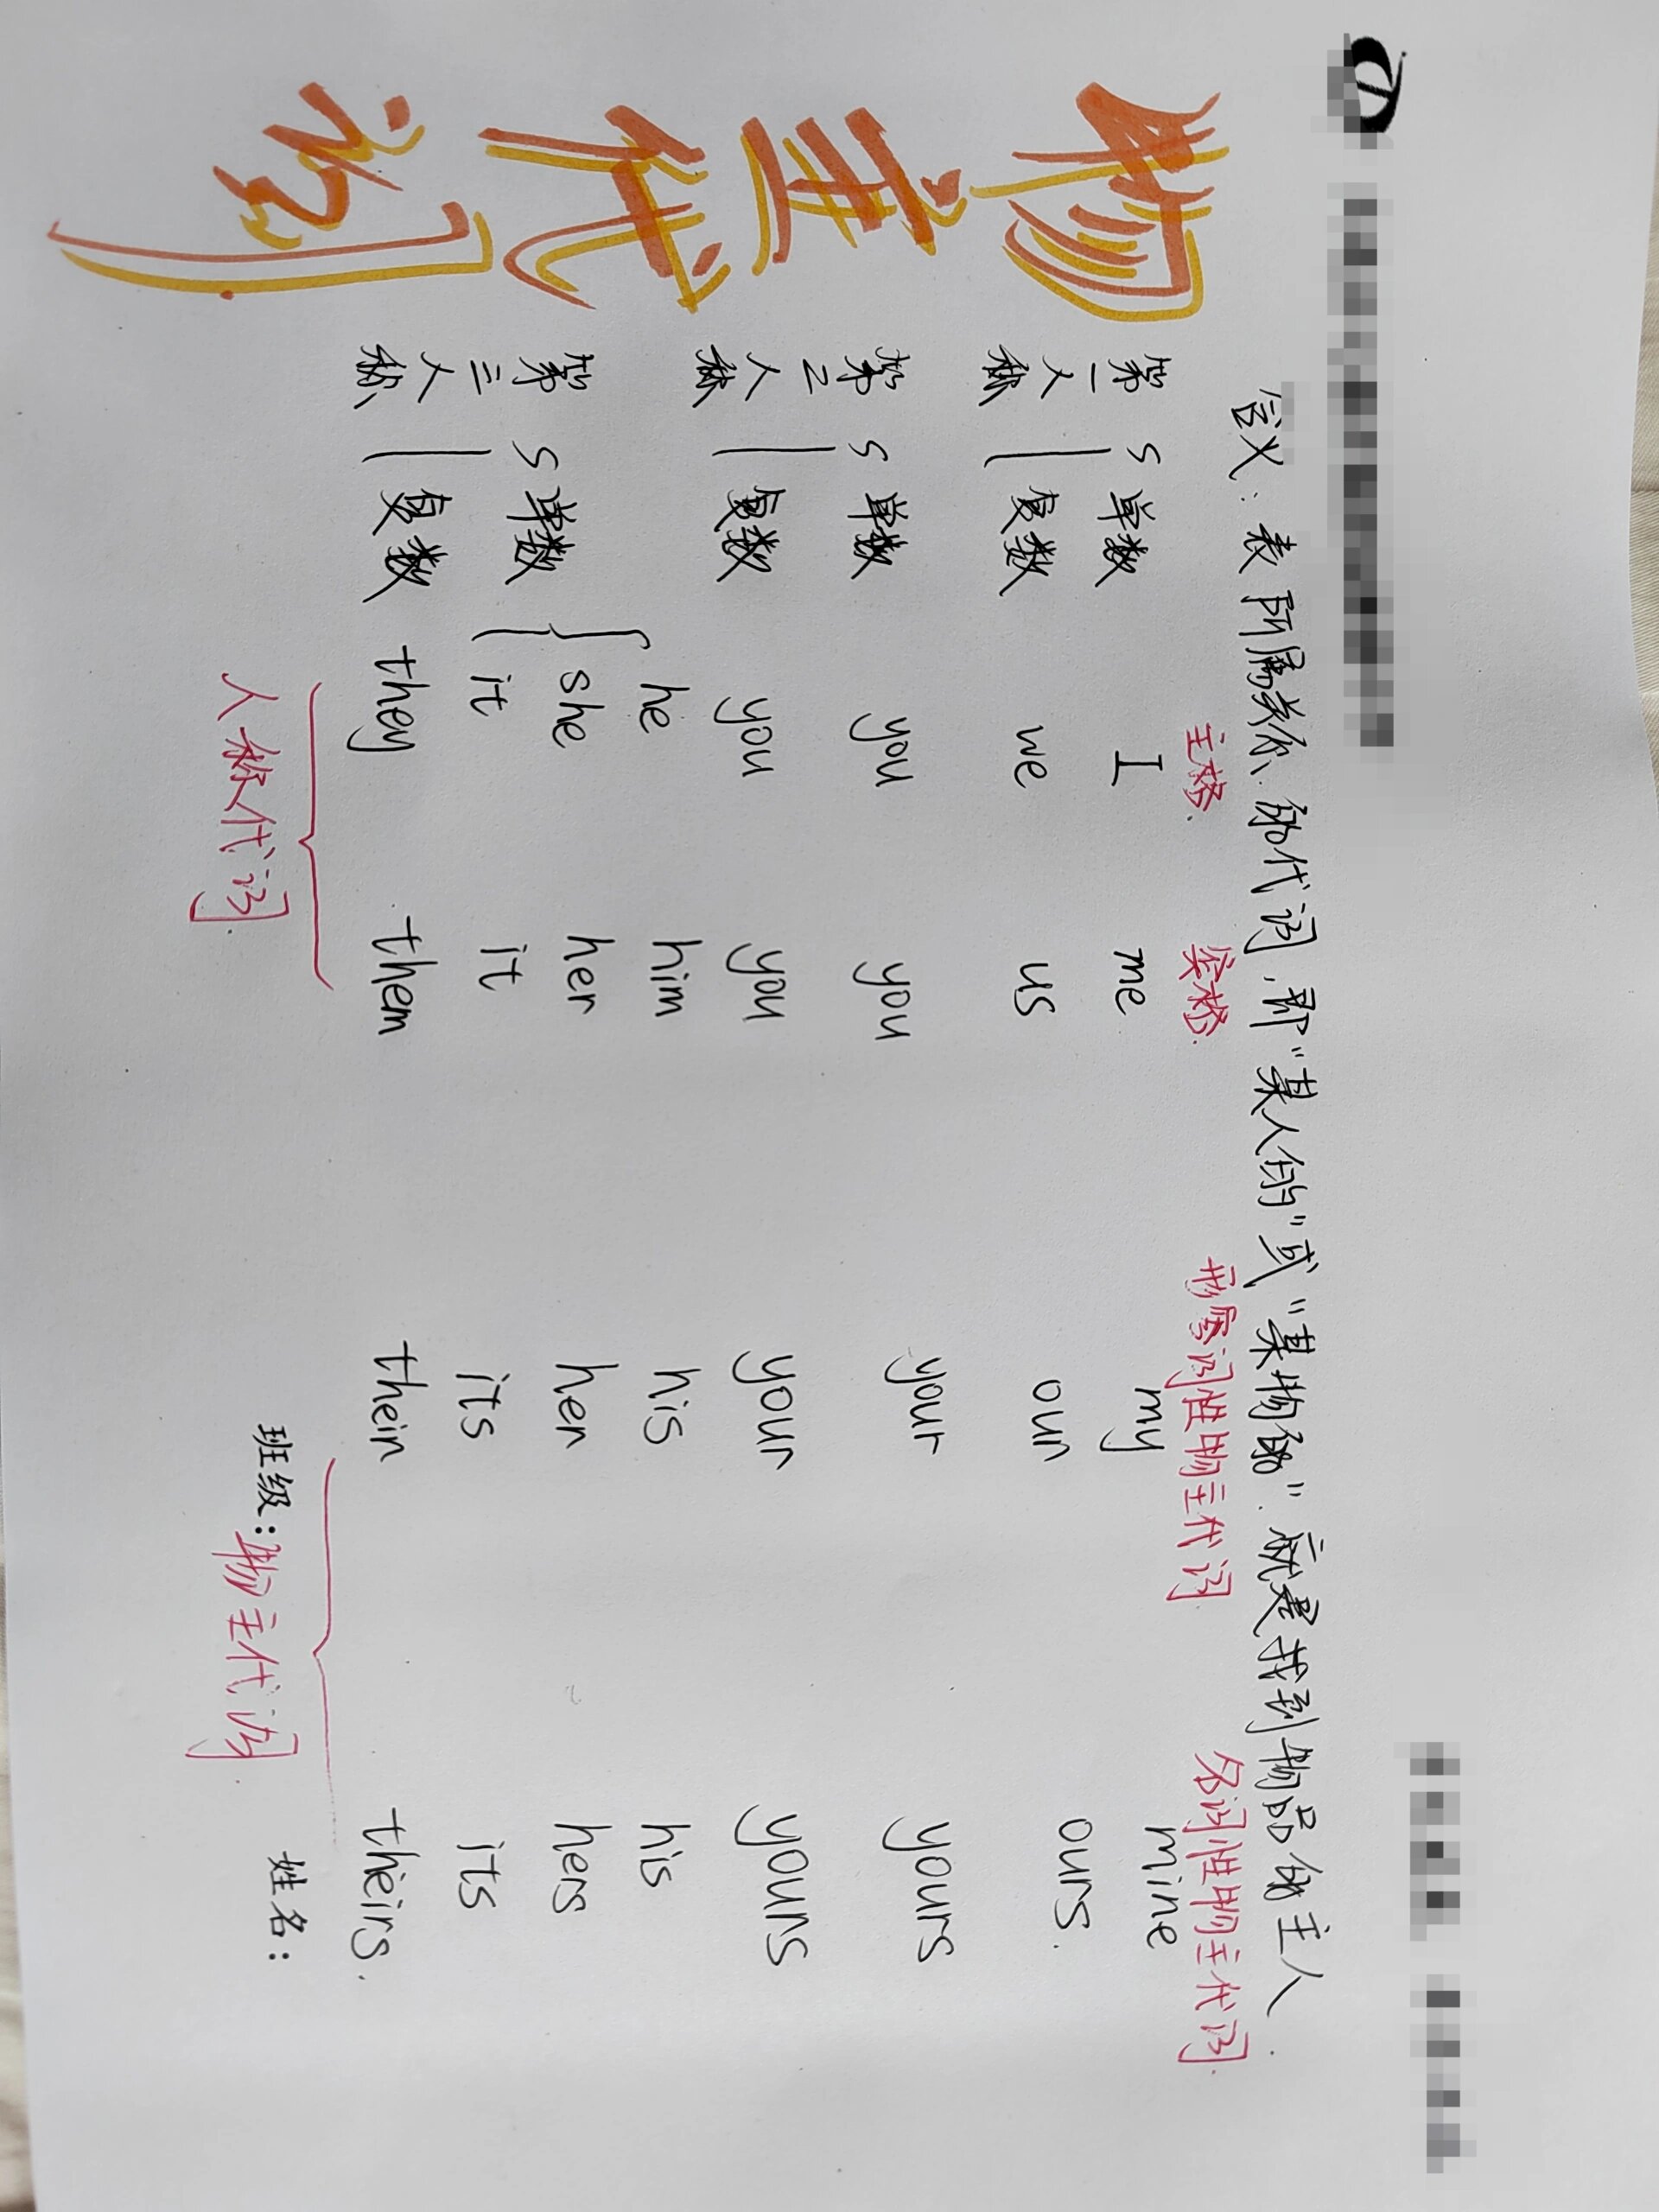 物主代词
含义：表所属关系的代词，即"某人的"或"某物的"．就是找到物品的主人．
主格． 宾格． 形容词性物主代词 名词性物主代词．
第一人称 单数 I me my mine
复数 we us our ours.
第二人称 单数 you you your yours
复数 you you your yours
第三人称 单数 he him his his
she her her hers
it it its its
复数 they them their theirs.
人称代词． 物主代词．
班级： 姓名：